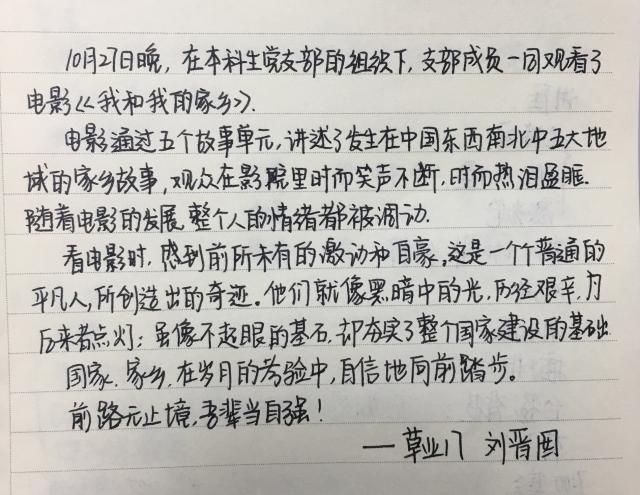 10月27日晚，在本科生党支部的组织下，支部成员一同观看了
电影《我和我的家乡》.
电影通过五个故事单元，讲述了发生在中国东西南北中五大地
域的家乡故事，观众在影院里时而笑声不断，时而热泪盈眶.
随着电影的发展，整个人的情绪都被调动.
看电影时，感到前所未有的激动和自豪。这是一个个普通的
平凡人，所创造出的奇迹。他们就像黑暗中的光，历经艰辛，为
后来者点灯；虽像不起眼的基石，却夯实了整个国家建设的基础.
国家、家乡，在岁月的考验中，自信地向前踏步。
前路无止境，吾辈当自强！
——草业 刘晋